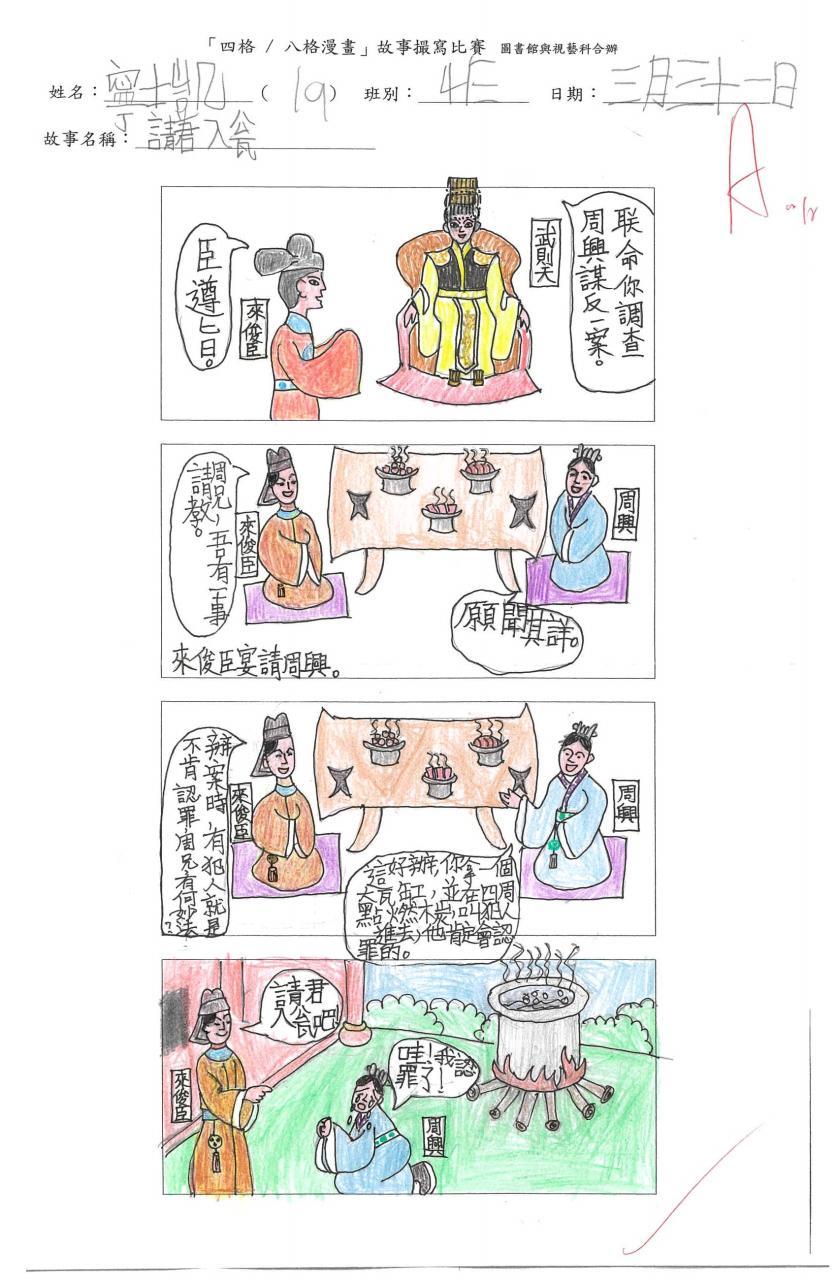 「四格 / 八格漫畫」故事撮寫比賽 圖書館與視藝科合辦
姓名： （19） 班別：4E 日期：三月三十一日
故事名稱：請君入瓮
A
武則天
联命你調查
周興謀反一案。
來俊臣
臣遵旨。
周兄，吾有一事
請教。
來俊臣
周興
願聞其詳。
來俊臣宴請周興。
辦案時，有犯人就是
不肯認罪，周兄有何妙法？
來俊臣
周興
這好辦，你拿一個
大瓦缸，並在四周
點燃木炭，叫犯人
進去，他肯定會認
罪的。
請君
入瓮吧
來俊臣
哇！我認
罪了！
周興